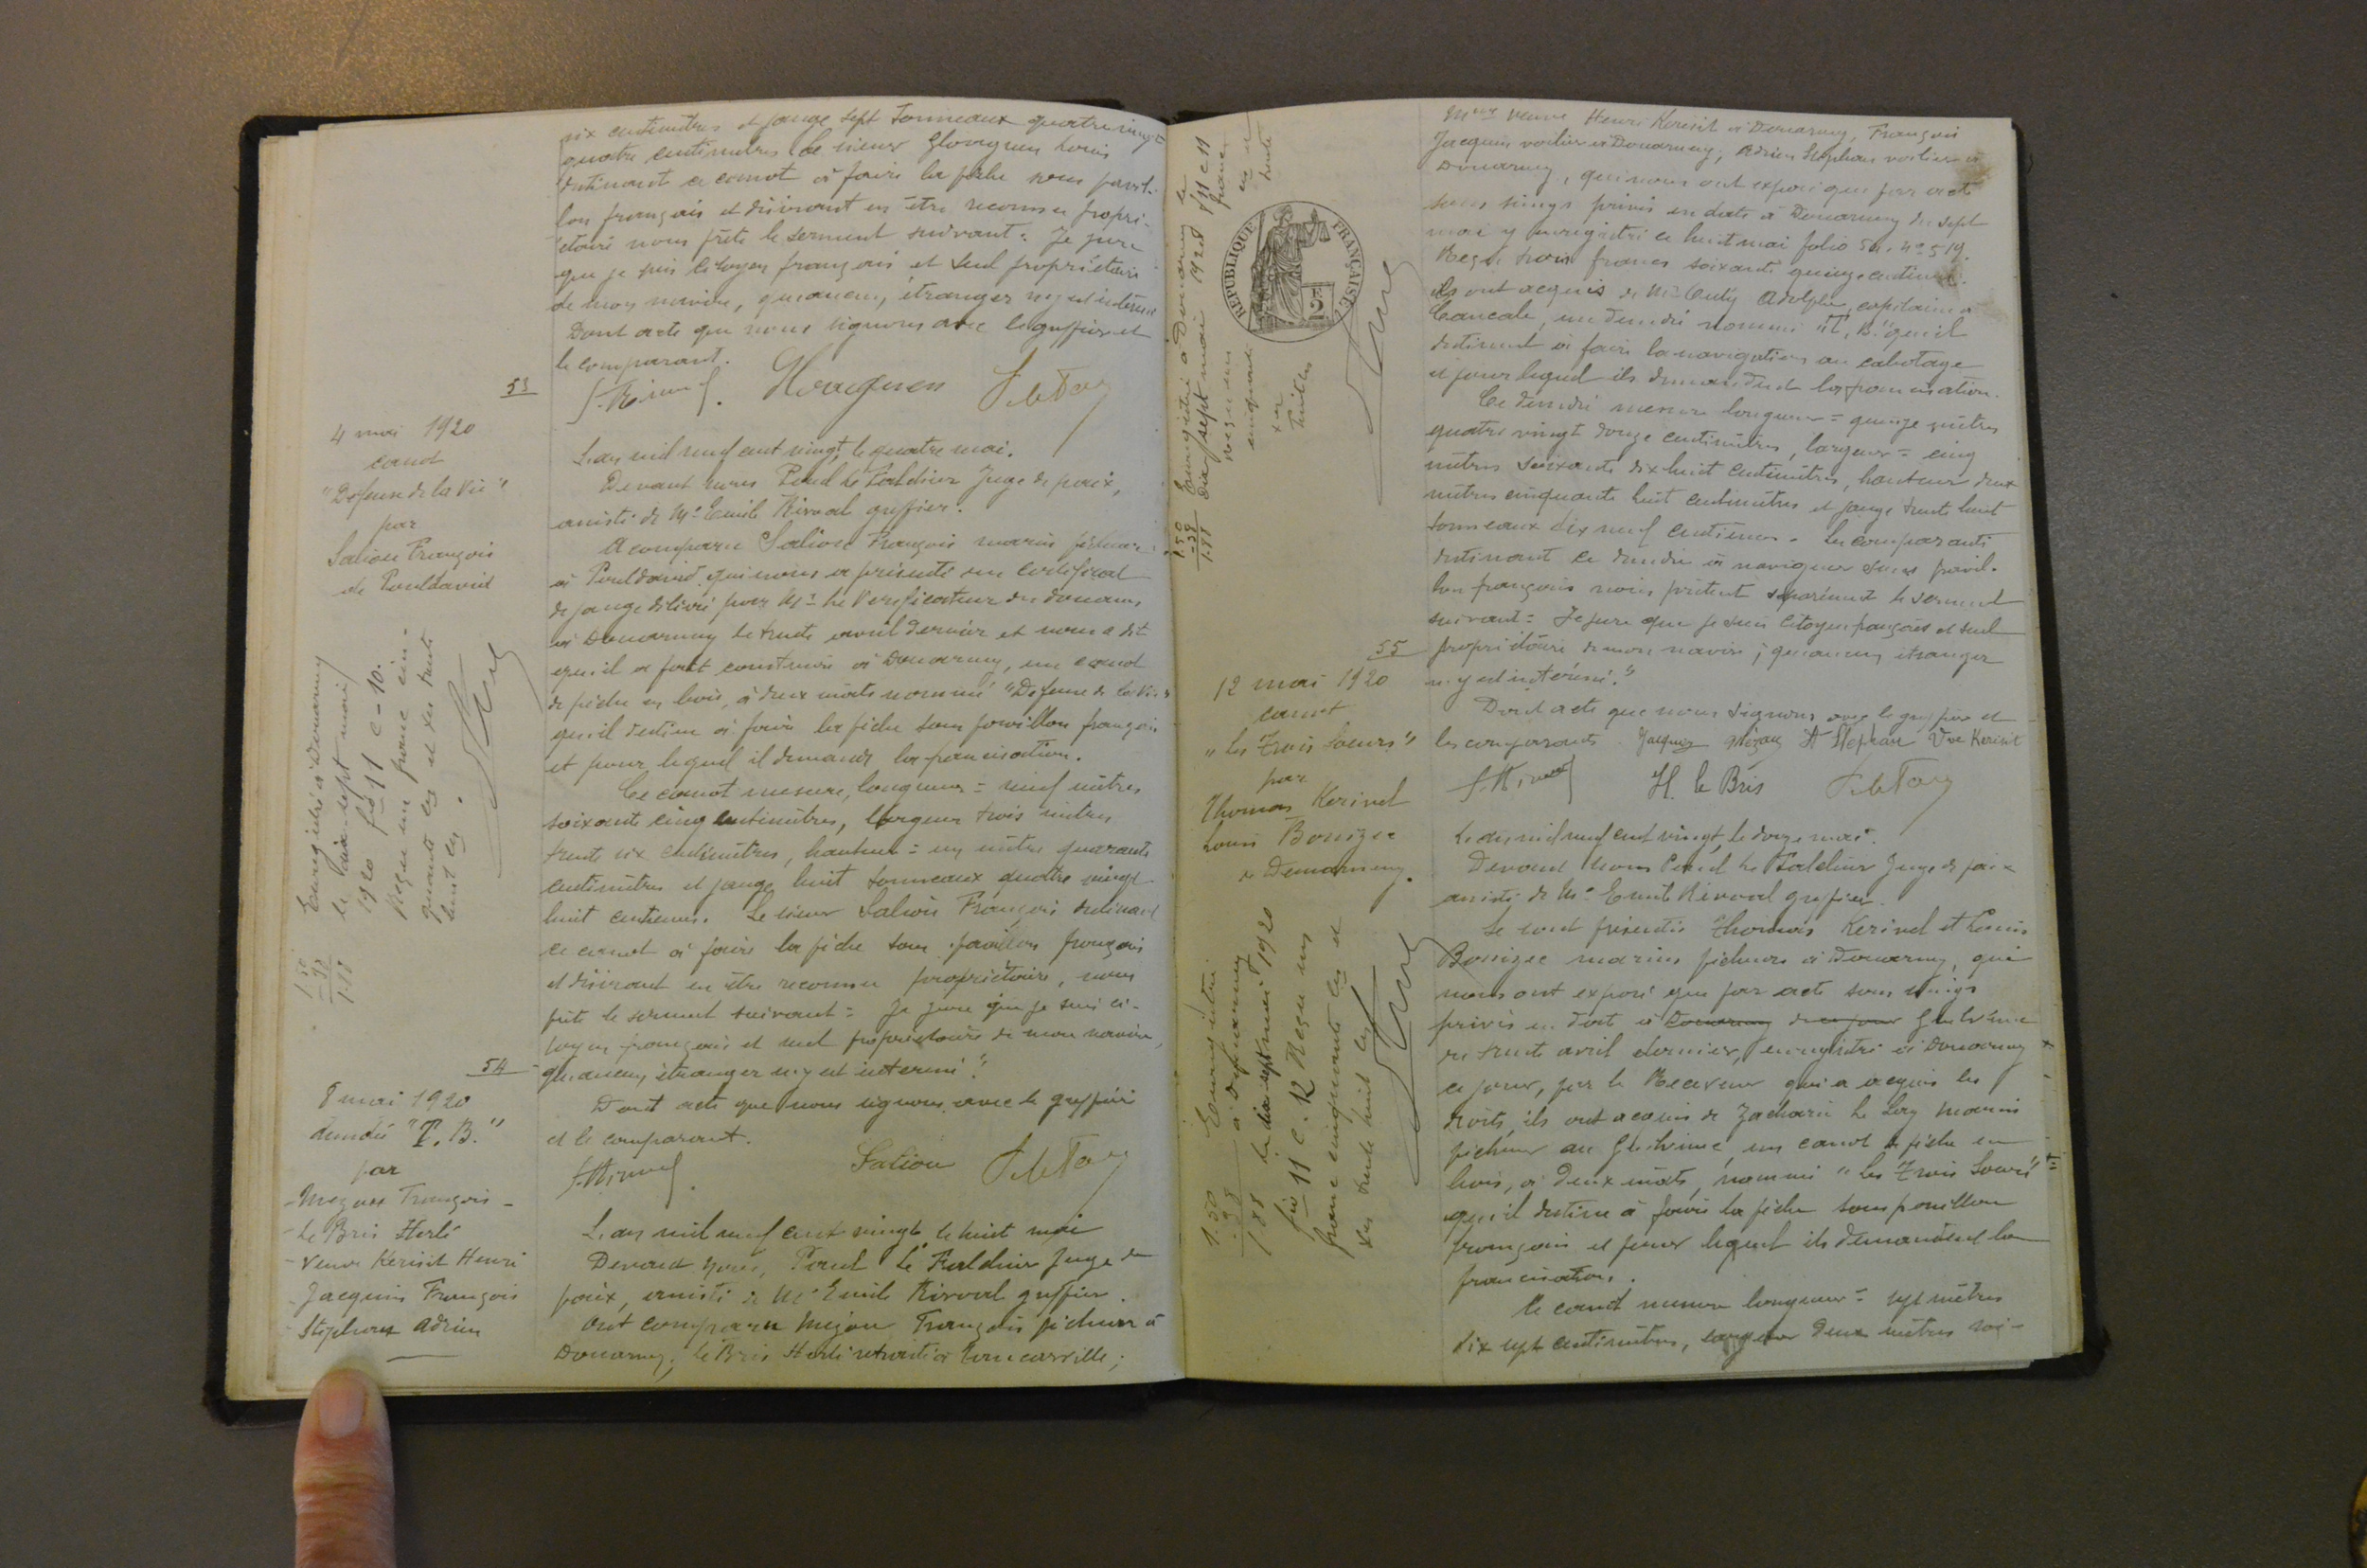 six centimètres et jauge sept tonneaux quatre vingt
quatre centimetres. Le sieur Gloaguen Louis
destinant ce canot à faire la pêche sous pavil-
lon français et désirant en être reconnu propri-
étaire nous prête le serment suivant : Je jure
que je suis citoyen français et seul propriétaire
de mon navire, qu'aucun étranger n'y est intéressé
Dont acte que nous signons avec le greffier et
le comparant.
Gloaguen
53
4 mai 1920
canot
"Defense de la Vie"
par
Saliou François
de Pouldavid
Enregistré à Douarnenez
le dix-sept mai
1920 f° 11 c - 10.
Reçu un franc cin-
quante ces et des trente
huit ces.
1.50
-38
1.88
L'an mil neuf cent vingt, le quatre mai.
Devant nous Paul Le Juge de paix,
assisté de Mr Emile Rivoal greffier.
A comparu Saliou François marin pêcheur
à Pouldavid qui nous a présenté un certificat
de jauge délivré par Mr Le Verificateur des douanes
à Douarnenez le trente avril dernier et nous a dit
qu'il a fait construire à Douarnenez, un canot
de pêche en bois, à deux mâts nommé "Defense de la Vie"
qu'il destine à faire la pêche sous pavillon français
et pour lequel il demande la francisation.
Ce canot mesure, longueur = neuf mètres
soixante cinq centimètres, largeur trois mètres
trente six centimètres, hauteur = un mètre quarante
centimètres et jauge huit tonneaux quatre vingt
huit centiemes. Le sieur Saliou François destinant
ce canot à faire la pêche sous pavillon français
et désirant en être reconnu propriétaire, nous
prête le serment suivant = Je jure que je suis ci-
toyen français et seul propriétaire de mon navire,
qu'aucun étranger n'y est interessé."
Dont acte que nous signons avec le greffier
et le comparant.
Saliou
54
8 mai 1920
dundée "T. B."
par
- Mezou François -
- Le Bris Herlé
- Veuve Kerisit Henri
- Jacquin François
- Stephan Adrien
L'an mil neuf cent vingt le huit mai
Devant nous, Paul Le Juge de
paix, assisté de Mr Emile Rivoal greffier.
Ont comparu Mezou François pêcheur à
Douarnenez; le Bris Herlé retraité à Tancarville;
Mme veuve Henri Kerisit à Douarnenez, François
Jacquin voilier à Douarnenez; Adrien Stephan voilier à
Douarnenez, qui nous ont exposé que par acte
sous seings privés en date à Douarnenez du sept
mai y enregistré le huit mai folio 50. n° 519.
Reçu trois francs soixante quinze centimes.
ils ont acquis de Mr Adolphe, capitaine à
Cancale, un dundée nommé "T. B." qu'ils
destinent à faire la navigation au cabotage
et pour lequel ils demandent la francisation.
Ce dundée mesure longueur = quinze mètres
quatre vingt douze centimètres, largeur = cinq
mètres soixante dix huit centimètres, hauteur deux
mètres cinquante huit centimètres et jauge trente huit
tonneaux dix neuf centiemes. Les comparants
destinant ce dundée à naviguer sous pavil-
lon français nous prêtent séparément le serment
suivant = Je jure que je suis citoyen français et seul
propriétaire de mon navire; qu'aucun étranger
n'y est intéressé."
Dont acte que nous signons avec le greffier et
les comparants. Jacquin Mézou A Stephan Vve Kerisit
H. le Bris
REPUBLIQUE FRANÇAISE
2F
Enregistré à Douarnenez le
dix sept mai 1920 f° 11 c 11
1.50
-38
1.88
55
12 mai 1920
canot
"les Trois Soeurs"
par
Thomas Kerivel
Louis Bonizec
à Douarnenez.
Enregistré
à Douarnenez
le dix sept mai 1920
f° 11 c. 12 Reçu un
franc cinquante ces et
des trente huit ces
1.50
-38
1.88
L'an mil neuf cent vingt, le douze mai.
Devant nous Paul Le Juge de paix
assisté de Mr Emile Rivoal greffier.
Se sont présentés Thomas Kerivel et Louis
Bonizec marins pêcheurs à Douarnenez, qui
nous ont exposé que par acte sous seings
privés en date à Douarnenez de ce jour Guilvinec
du trente avril dernier, enregistré à Douarnenez
ce jour, par le Receveur qui a acquis les
droits, ils ont acquis de Zacharie Le Lay marin
pêcheur au Guilvinec un canot de pêche en
bois, à deux mâts, nommé "Les Trois Soeurs"
qu'il destine à faire la pêche sous pavillon
français et pour lequel ils demandent la
francisation.
Ce canot mesure longueur = sept mètres
dix sept centimètres, largeur deux mètres soi-